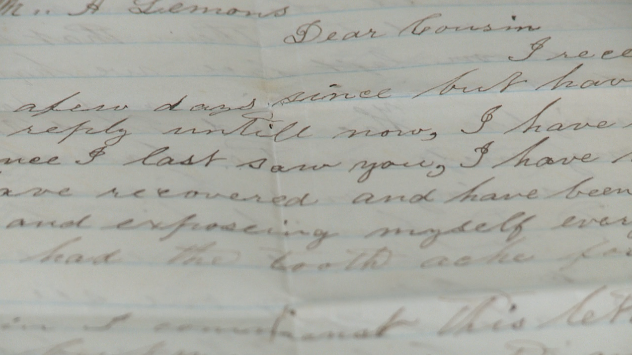 A Lemons
Dear Cousin
I rece
afew days since but hav
reply untill now, I have
nce I last saw you, I have
ave recovered and have been
and exposeing myself ever
had the tooth ache fo
I this let